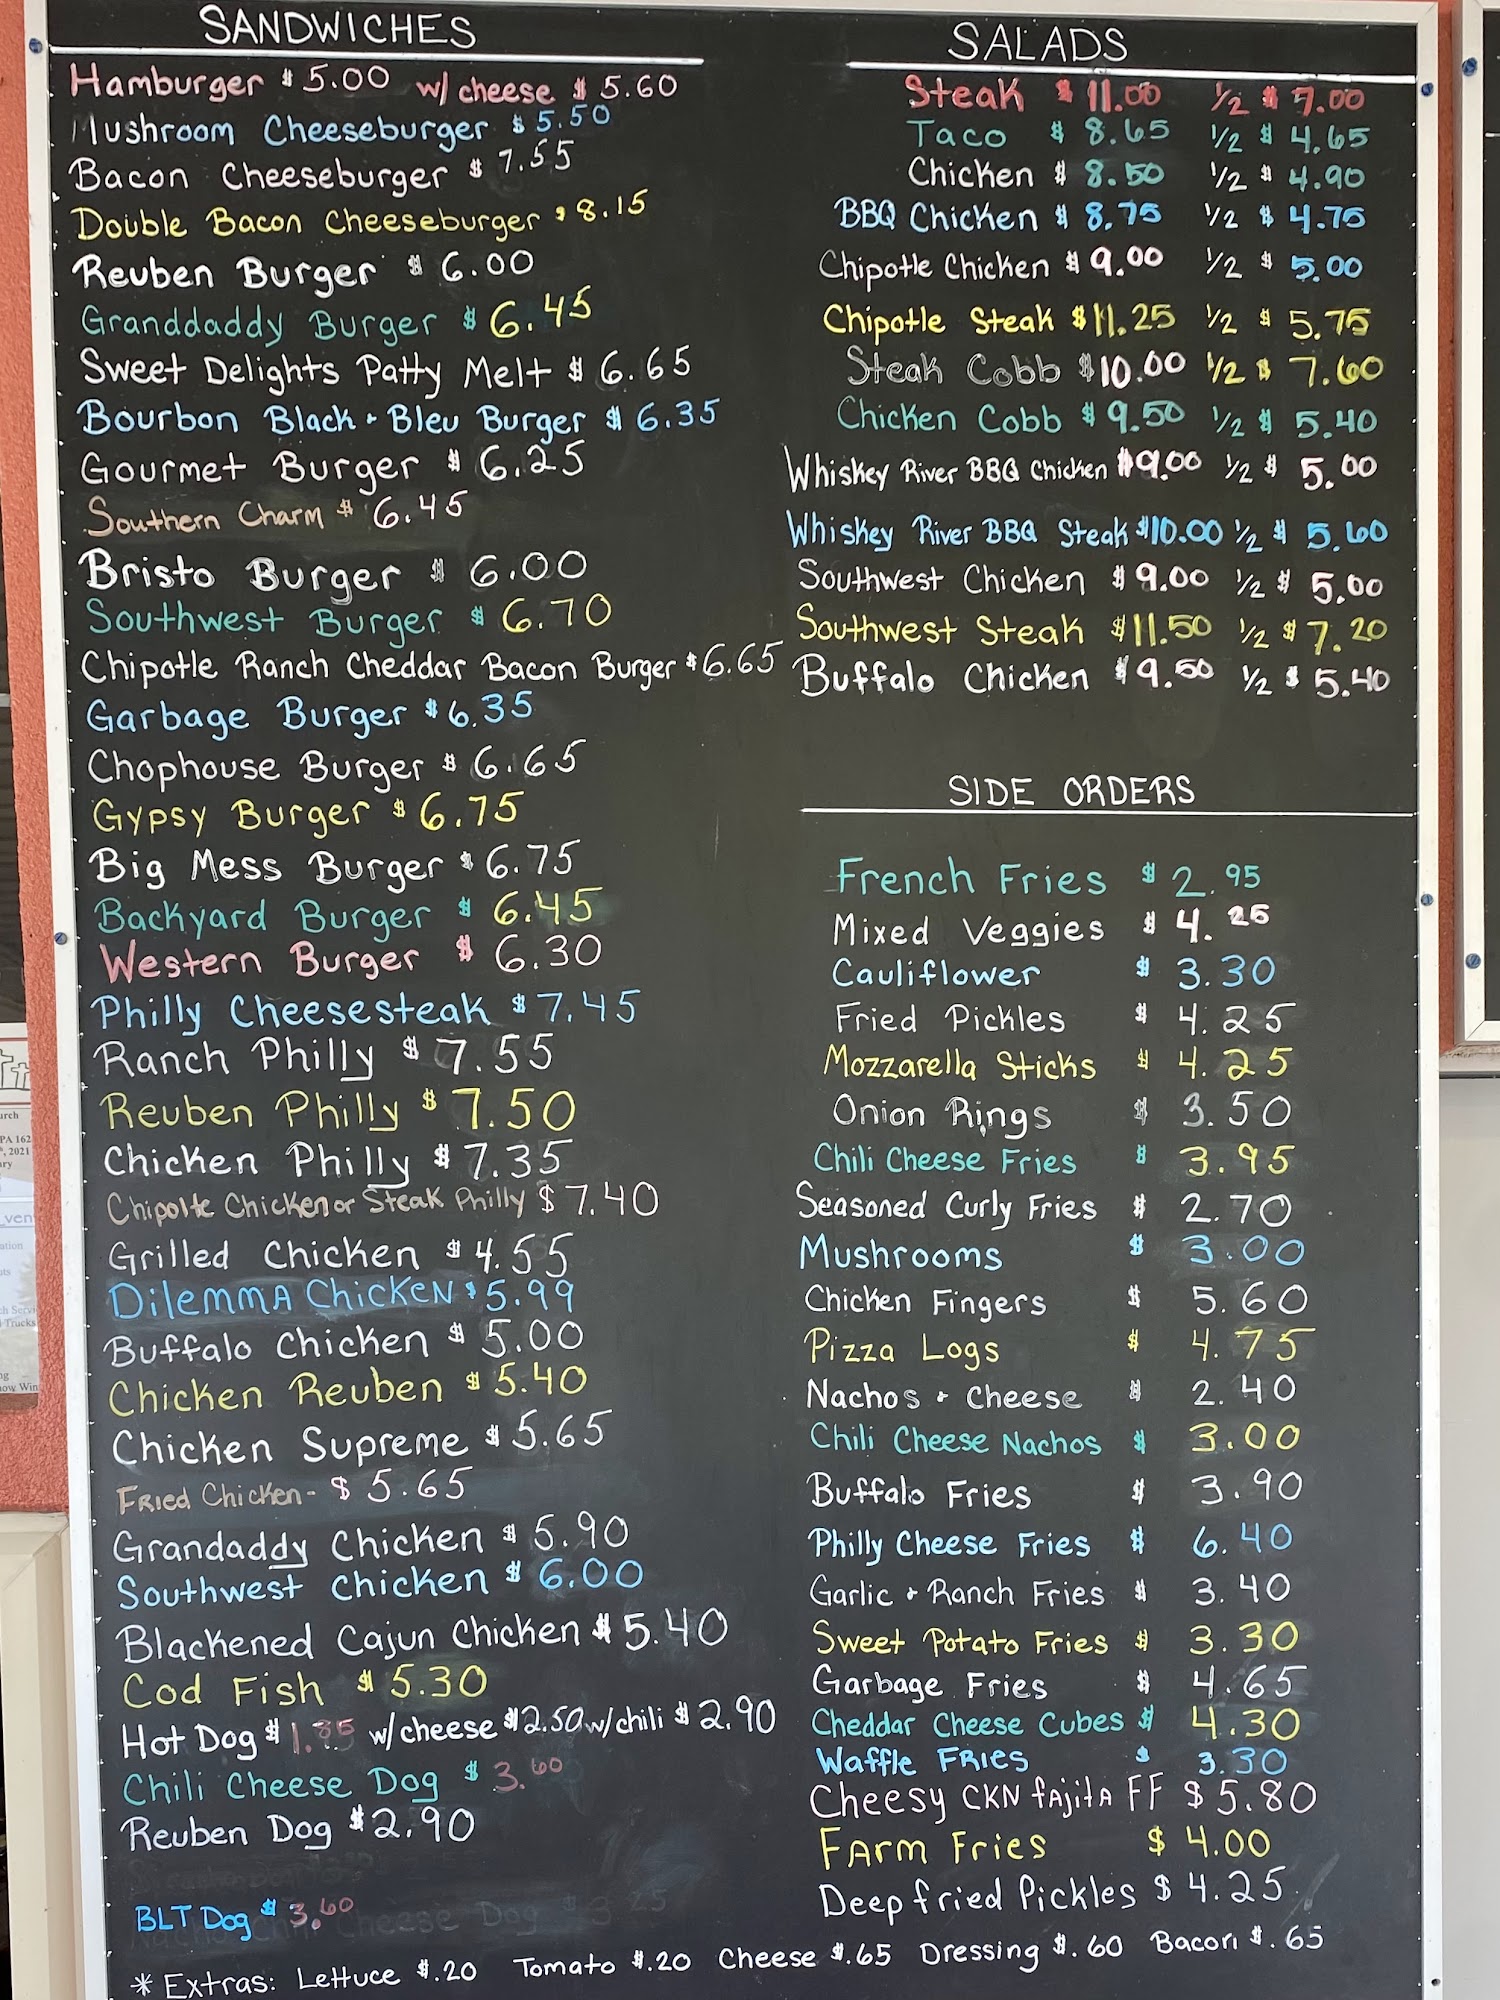 SANDWICHES
Hamburger $5.00 w/cheese $5.60
Mushroom Cheeseburger $5.50
Bacon Cheeseburger $7.55
Double Bacon Cheeseburger $8.15
Reuben Burger $6.00
Granddaddy Burger $6.45
Sweet Delights Patty Melt $6.65
Bourbon Black + Bleu Burger $6.35
Gourmet Burger $6.25
Southern Charm $6.45
Bristo Burger $6.00
Southwest Burger $6.70
Chipotle Ranch Cheddar Bacon Burger $6.65
Garbage Burger $6.35
Chophouse Burger $6.65
Gypsy Burger $6.75
Big Mess Burger $6.75
Backyard Burger $6.45
Western Burger $6.30
Philly Cheesesteak $7.45
Ranch Philly $7.55
Reuben Philly $7.50
Chicken Philly $7.35
Chipolte Chicken or Steak Philly $7.40
Grilled Chicken $4.55
Dilemma Chicken $5.99
Buffalo Chicken $5.00
Chicken Reuben $5.40
Chicken Supreme $5.65
Fried Chicken - $5.65
Grandaddy Chicken $5.90
Southwest Chicken $6.00
Blackened Cajun Chicken $5.40
Cod Fish $5.30
Hot Dog $1.85 w/cheese $2.50 w/chili $2.90
Chili Cheese Dog $3.60
Reuben Dog $2.90
BLT Dog $3.60
SALADS
Steak $11.00 1/2 $7.00
Taco $8.65 1/2 $4.65
Chicken $8.50 1/2 $4.90
BBQ Chicken $8.75 1/2 $4.75
Chipotle Chicken $9.00 1/2 $5.00
Chipotle Steak $11.25 1/2 $5.75
Steak Cobb $10.00 1/2 $7.60
Chicken Cobb $9.50 1/2 $5.40
Whiskey River BBQ Chicken $9.00 1/2 $5.00
Whiskey River BBQ Steak $10.00 1/2 $5.60
Southwest Chicken $9.00 1/2 $5.00
Southwest Steak $11.50 1/2 $7.20
Buffalo Chicken $9.50 1/2 $5.40
SIDE ORDERS
French Fries $2.95
Mixed Veggies $4.25
Cauliflower $3.30
Fried Pickles $4.25
Mozzarella Sticks $4.25
Onion Rings $3.50
Chili Cheese Fries $3.95
Seasoned Curly Fries $2.70
Mushrooms $3.00
Chicken Fingers $5.60
Pizza Logs $4.75
Nachos + Cheese $2.40
Chili Cheese Nachos $3.00
Buffalo Fries $3.90
Philly Cheese Fries $6.40
Garlic + Ranch Fries $3.40
Sweet Potato Fries $3.30
Garbage Fries $4.65
Cheddar Cheese Cubes $4.30
Waffle Fries $3.30
Cheesy CKN fajita FF $5.80
Farm Fries $4.00
Deep fried Pickles $4.25
* Extras: Lettuce $.20 Tomato $.20 Cheese $.65 Dressing $.60 Bacon $.65